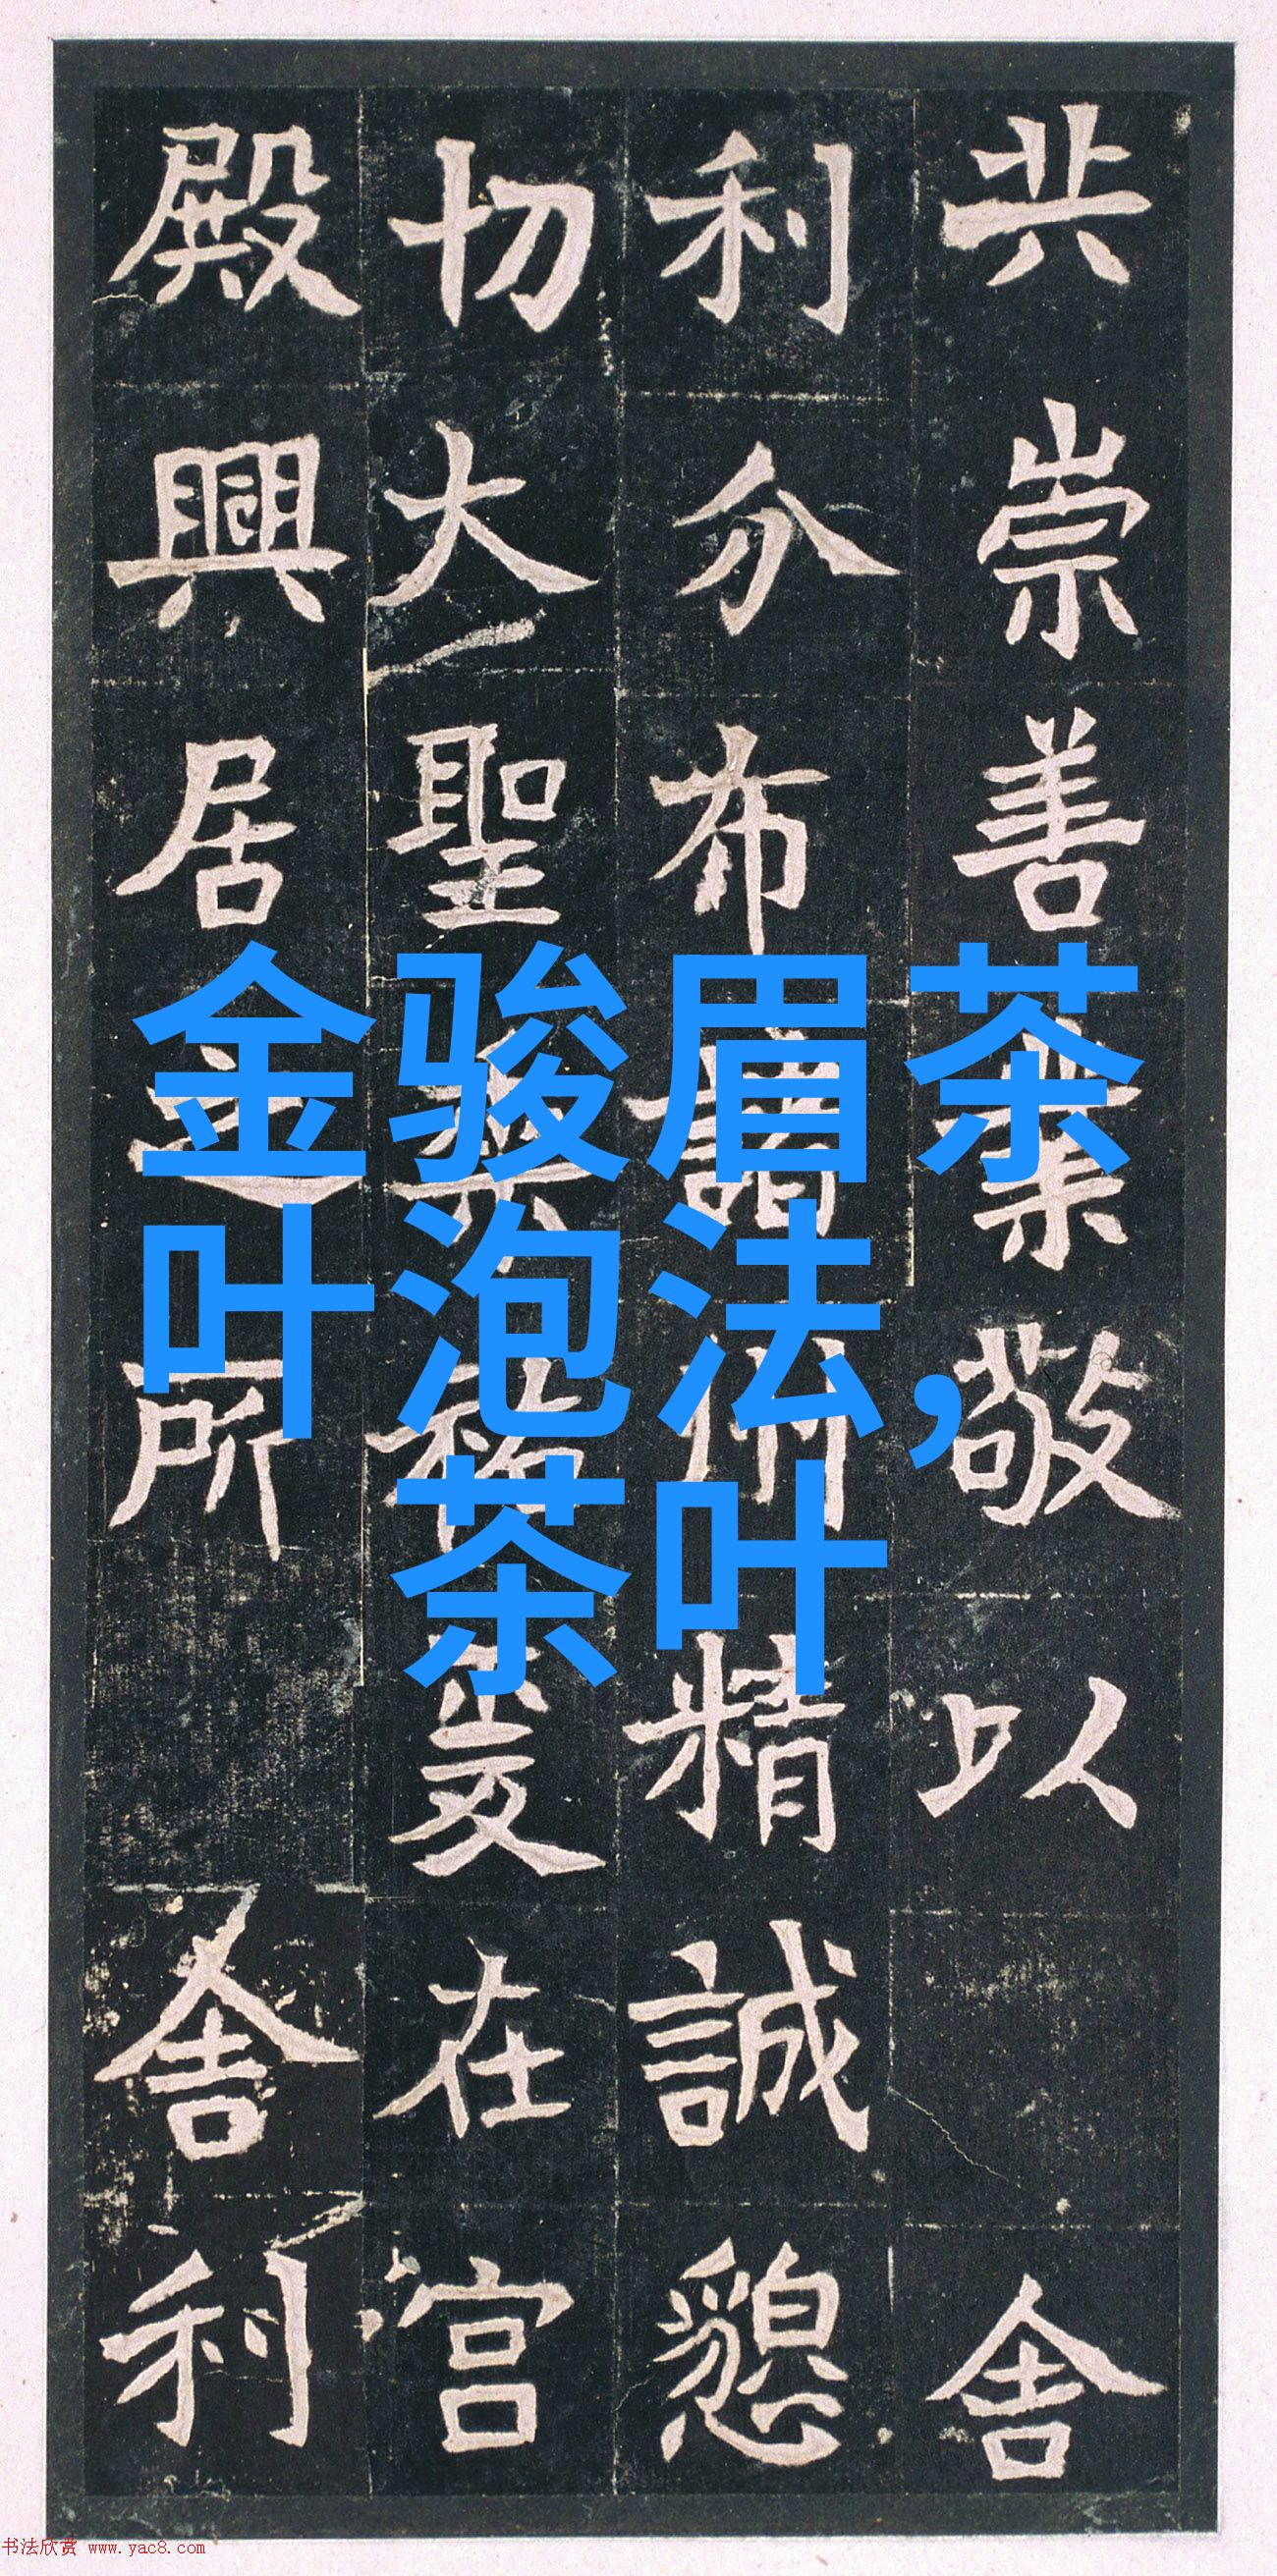 共崇善業敬以舍
利分布諸州精誠懇
切大聖爰在宮
殿興居之所舍利
金骏眉茶
叶泡法,
茶叶
书法欣赏 www.yac8.com